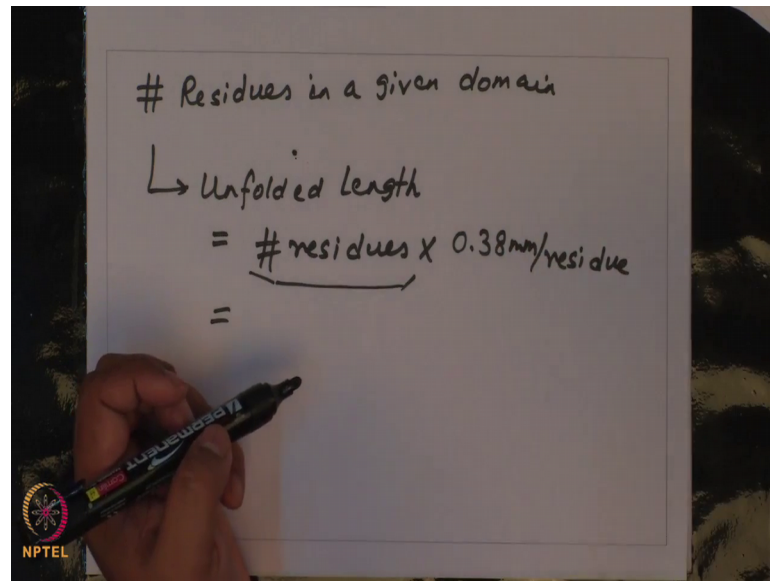 # Residues in a given domain
↳ Unfolded Length
= # residues x 0.38mm/residue
=
PERMANENT
NPTEL